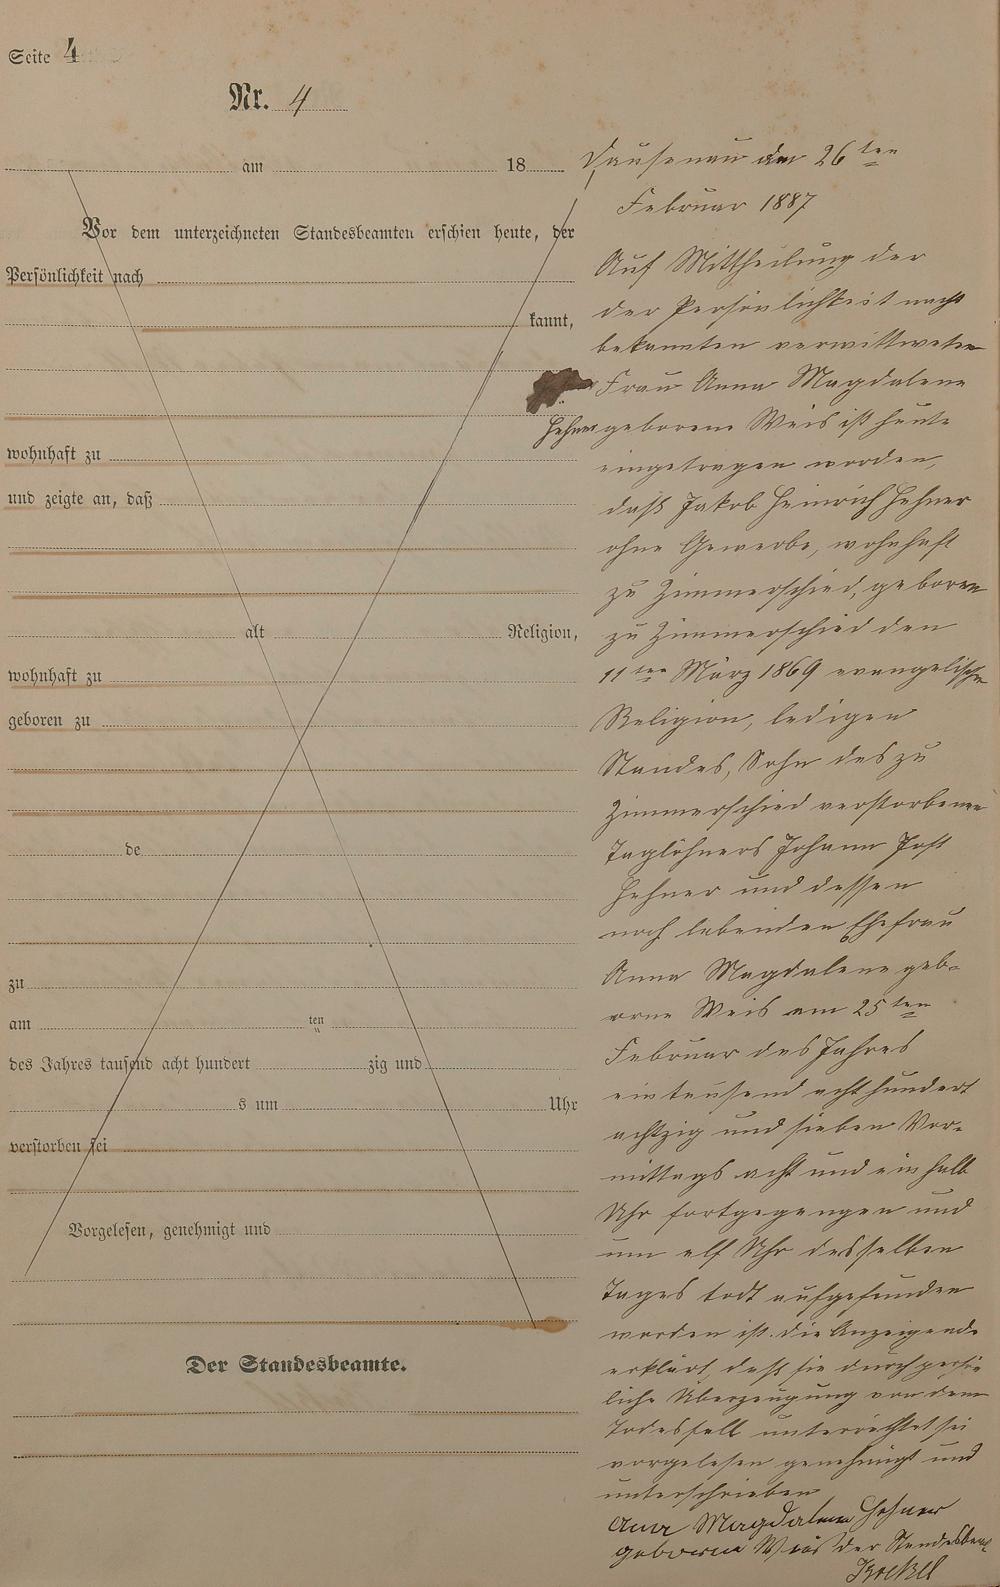 Seite 4
Nr. 4
am 18
Vor dem unterzeichneten Standesbeamten erschien heute, der
Persönlichkeit nach
kannt,
wohnhaft zu
und zeigte an, daß
alt Religion,
wohnhaft zu
geboren zu
de
zu
am ten
des Jahres tausend acht hundert zig und
s um Uhr
verstorben sei
Vorgelesen, genehmigt und
Der Standesbeamte.
Dausenau den 26ten
Februar 1887
Auf Mittheilung der
der Persönlichkeit nach
bekannten verwittweten
Frau Anna Magdalene
Hehner geborene Weis ist heute
eingetragen worden,
daß Jakob Heinrich Hehner
ohne Gewerbe, wohnhaft
zu Zimmerschied, geboren
zu Zimmerschied den
11ten März 1869 evangelischer
Religion, ledigen
Standes, Sohn des zu
Zimmerschied verstorbenen
Taglöhners Johann Jost
Hehner und dessen
noch lebenden Ehefrau
Anna Magdalene geb-
orne Weis am 25ten
Februar des Jahres
eintausend achthundert
achtzig und sieben Vor-
mittags acht und ein halb
Uhr fortgegangen und
um elf Uhr desselben
Tages todt aufgefunden
worden ist. die Anzeigende
erklärt, daß sie durch persön
liche Überzeugung von dem
Todesfall unterrichtet sei
vorgelesen genehmigt und
unterschrieben
Ana Magdalena Hehner
geborne Weis der Standesbeamte